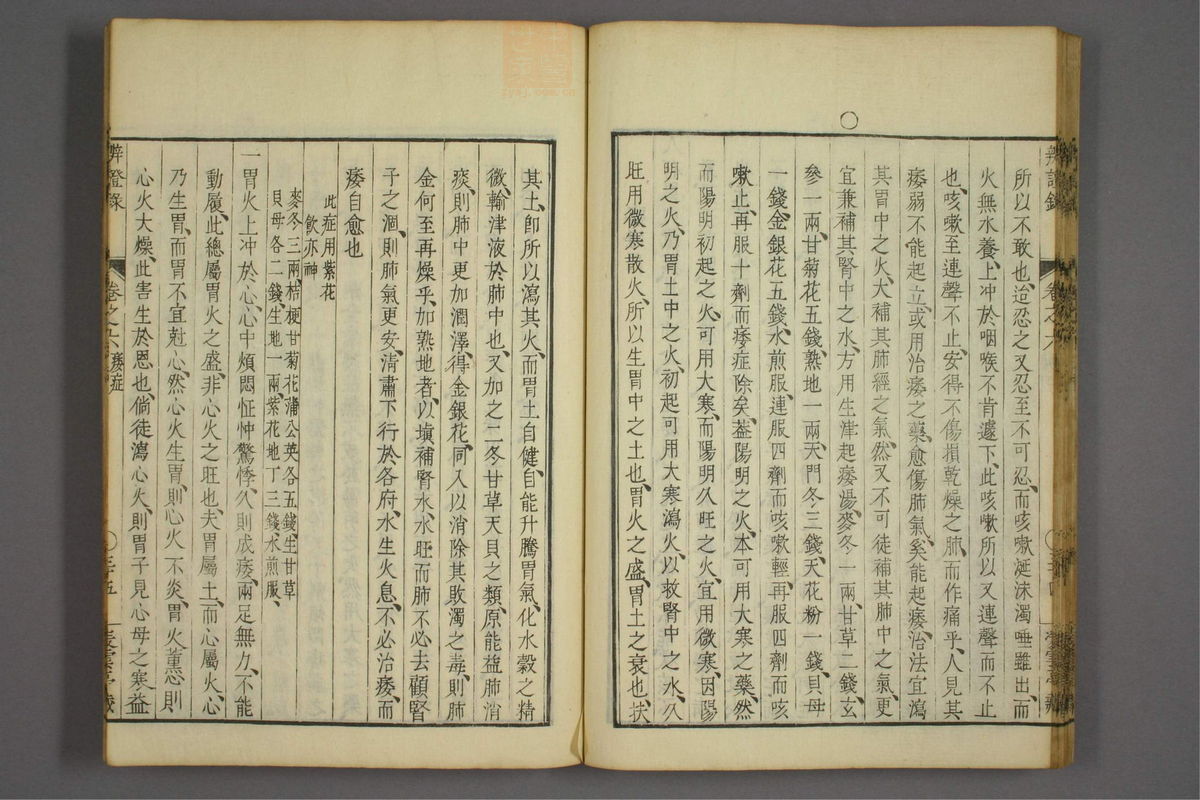 所以不敢也、迨忍之又忍至不可忍、而咳嗽涎沫濁唾雖出、而
火無水養、上冲於咽喉不肯遽下、此咳嗽所以又連聲而不止
也、咳嗽至連聲不止、安得不傷損乾燥之肺、而作痛乎、人見其
痿弱不能起立、或用治痿之藥、愈傷肺氣、奚能起痿、治法宜瀉
其胃中之火、大補其肺經之氣、然又不可徒補其肺中之氣、更
宜兼補其腎中之水、方用生津起痿湯、麥冬一兩、甘草二錢、玄
參一兩、甘菊花五錢、熟地一兩、天門冬三錢、天花粉一錢、貝母
一錢、金銀花五錢、水煎服、連服四劑而咳嗽輕、再服四劑而咳
嗽止、再服十劑而痿症除矣、蓋陽明之火、本可用大寒之藥、然
而陽明初起之火、可用大寒、而陽明久旺之火、宜用微寒、因陽
明之火、乃胃土中之火、初起可用大寒瀉火、以救腎中之水、久
旺用微寒散火、所以生胃中之土也、胃火之盛、胃土之衰也、扶
其土、卽所以瀉其火、而胃土自健、自能升騰胃氣、化水穀之精
微、輸津液於肺中也、又加之二冬甘草天貝之類、原能益肺消
痰、則肺中更加潤澤、得金銀花、同入以消除其敗濁之毒、則肺
金何至再燥乎、加熟地者、以塡補腎水、水旺而肺不必去顧腎
子之涸、則肺氣更安、清肅下行於各府、水生火息、不必治痿、而
痿自愈也
此症用紫花
飲亦神
麥冬三兩、桔梗甘菊花蒲公英各五錢、生甘草
貝母各二錢、生地一兩、紫花地丁三錢、水煎服、
一胃火上冲於心、心中煩悶怔忡驚悸、久則成痿、兩足無力、不能
動履、此總屬胃火之盛、非心火之旺也、夫胃屬土、而心屬火、心
乃生胃、而胃不宜尅心、然心火生胃、則心火不炎、胃火薰心、則
心火大燥、此害生於恩也、倘徒瀉心火、則胃子見心母之寒、益
辨證錄
卷之六
痿症
三十五